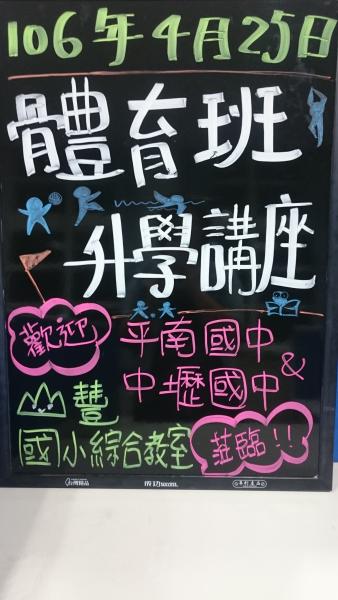 106年4月25日
體育班
升學講座
歡迎
平南國中
&
中壢國中
山豐
國小綜合教室
蒞臨!!